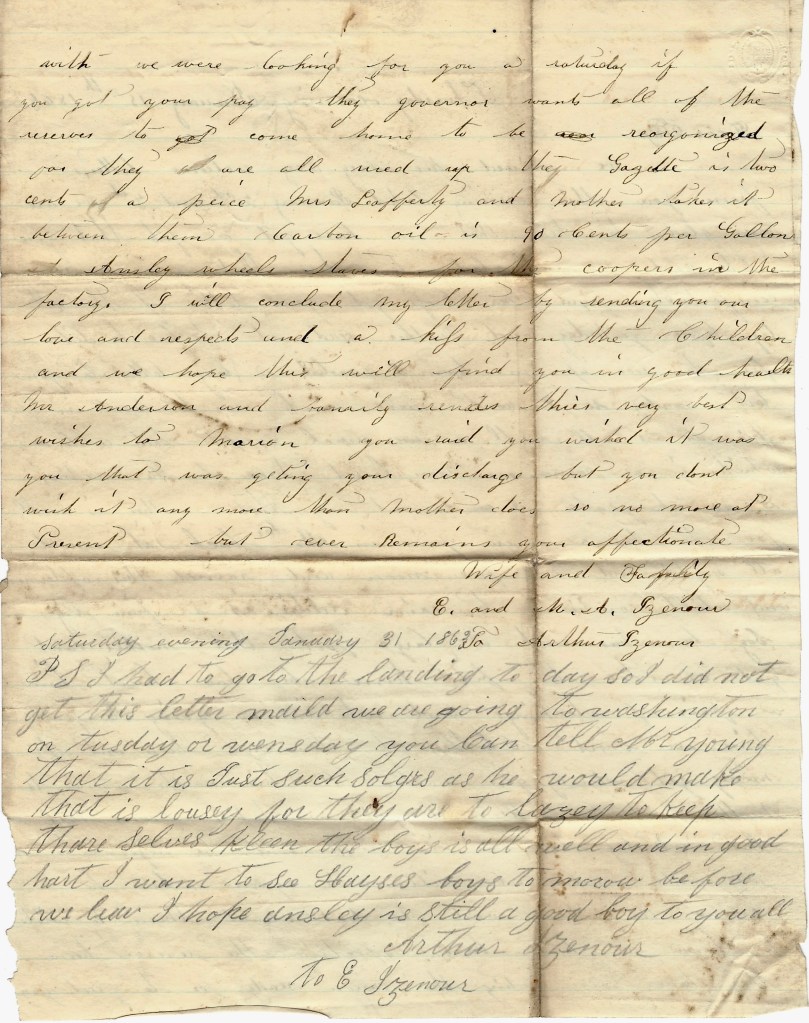 with we were looking for you a saturday if
you got your pay they governor wants all of the
reserves to come home to be reorganized
for they are all used up they Gazette is two
cents a peice Mrs Leafferty and Mother takes it
between them Carbon oil is 90 Cents per Gallon
Ansley wheels staves for the coopers in the
factory. I will conclude my letter by sending you our
love and respects and a kiss from the Children
and we hope this will find you in good health
Mr Anderson and family sendes thier very best
wishes to Marion you said you wished it was
you that was geting your discharge but you dont
wish it any more than Mother does so no more at
Present but ever Remains your affectionate
Wife and Family
E. and M. A. Izenour
Saturday evening January 31 1863 To Arthur Izenour
P S I had to go to the landing to day so I did not
get this letter maild we are going to washington
on tusday or wensday you Can tell Mr young
that it is Just such solgrs as he would make
that is lousey for they are to lazey to keep
thare selves kleen the boys is all well and in good
hart I want to see Hayses boys to morow before
we leav I hope ansley is still a good boy to you all
Arthur Izenour
to E Izenour